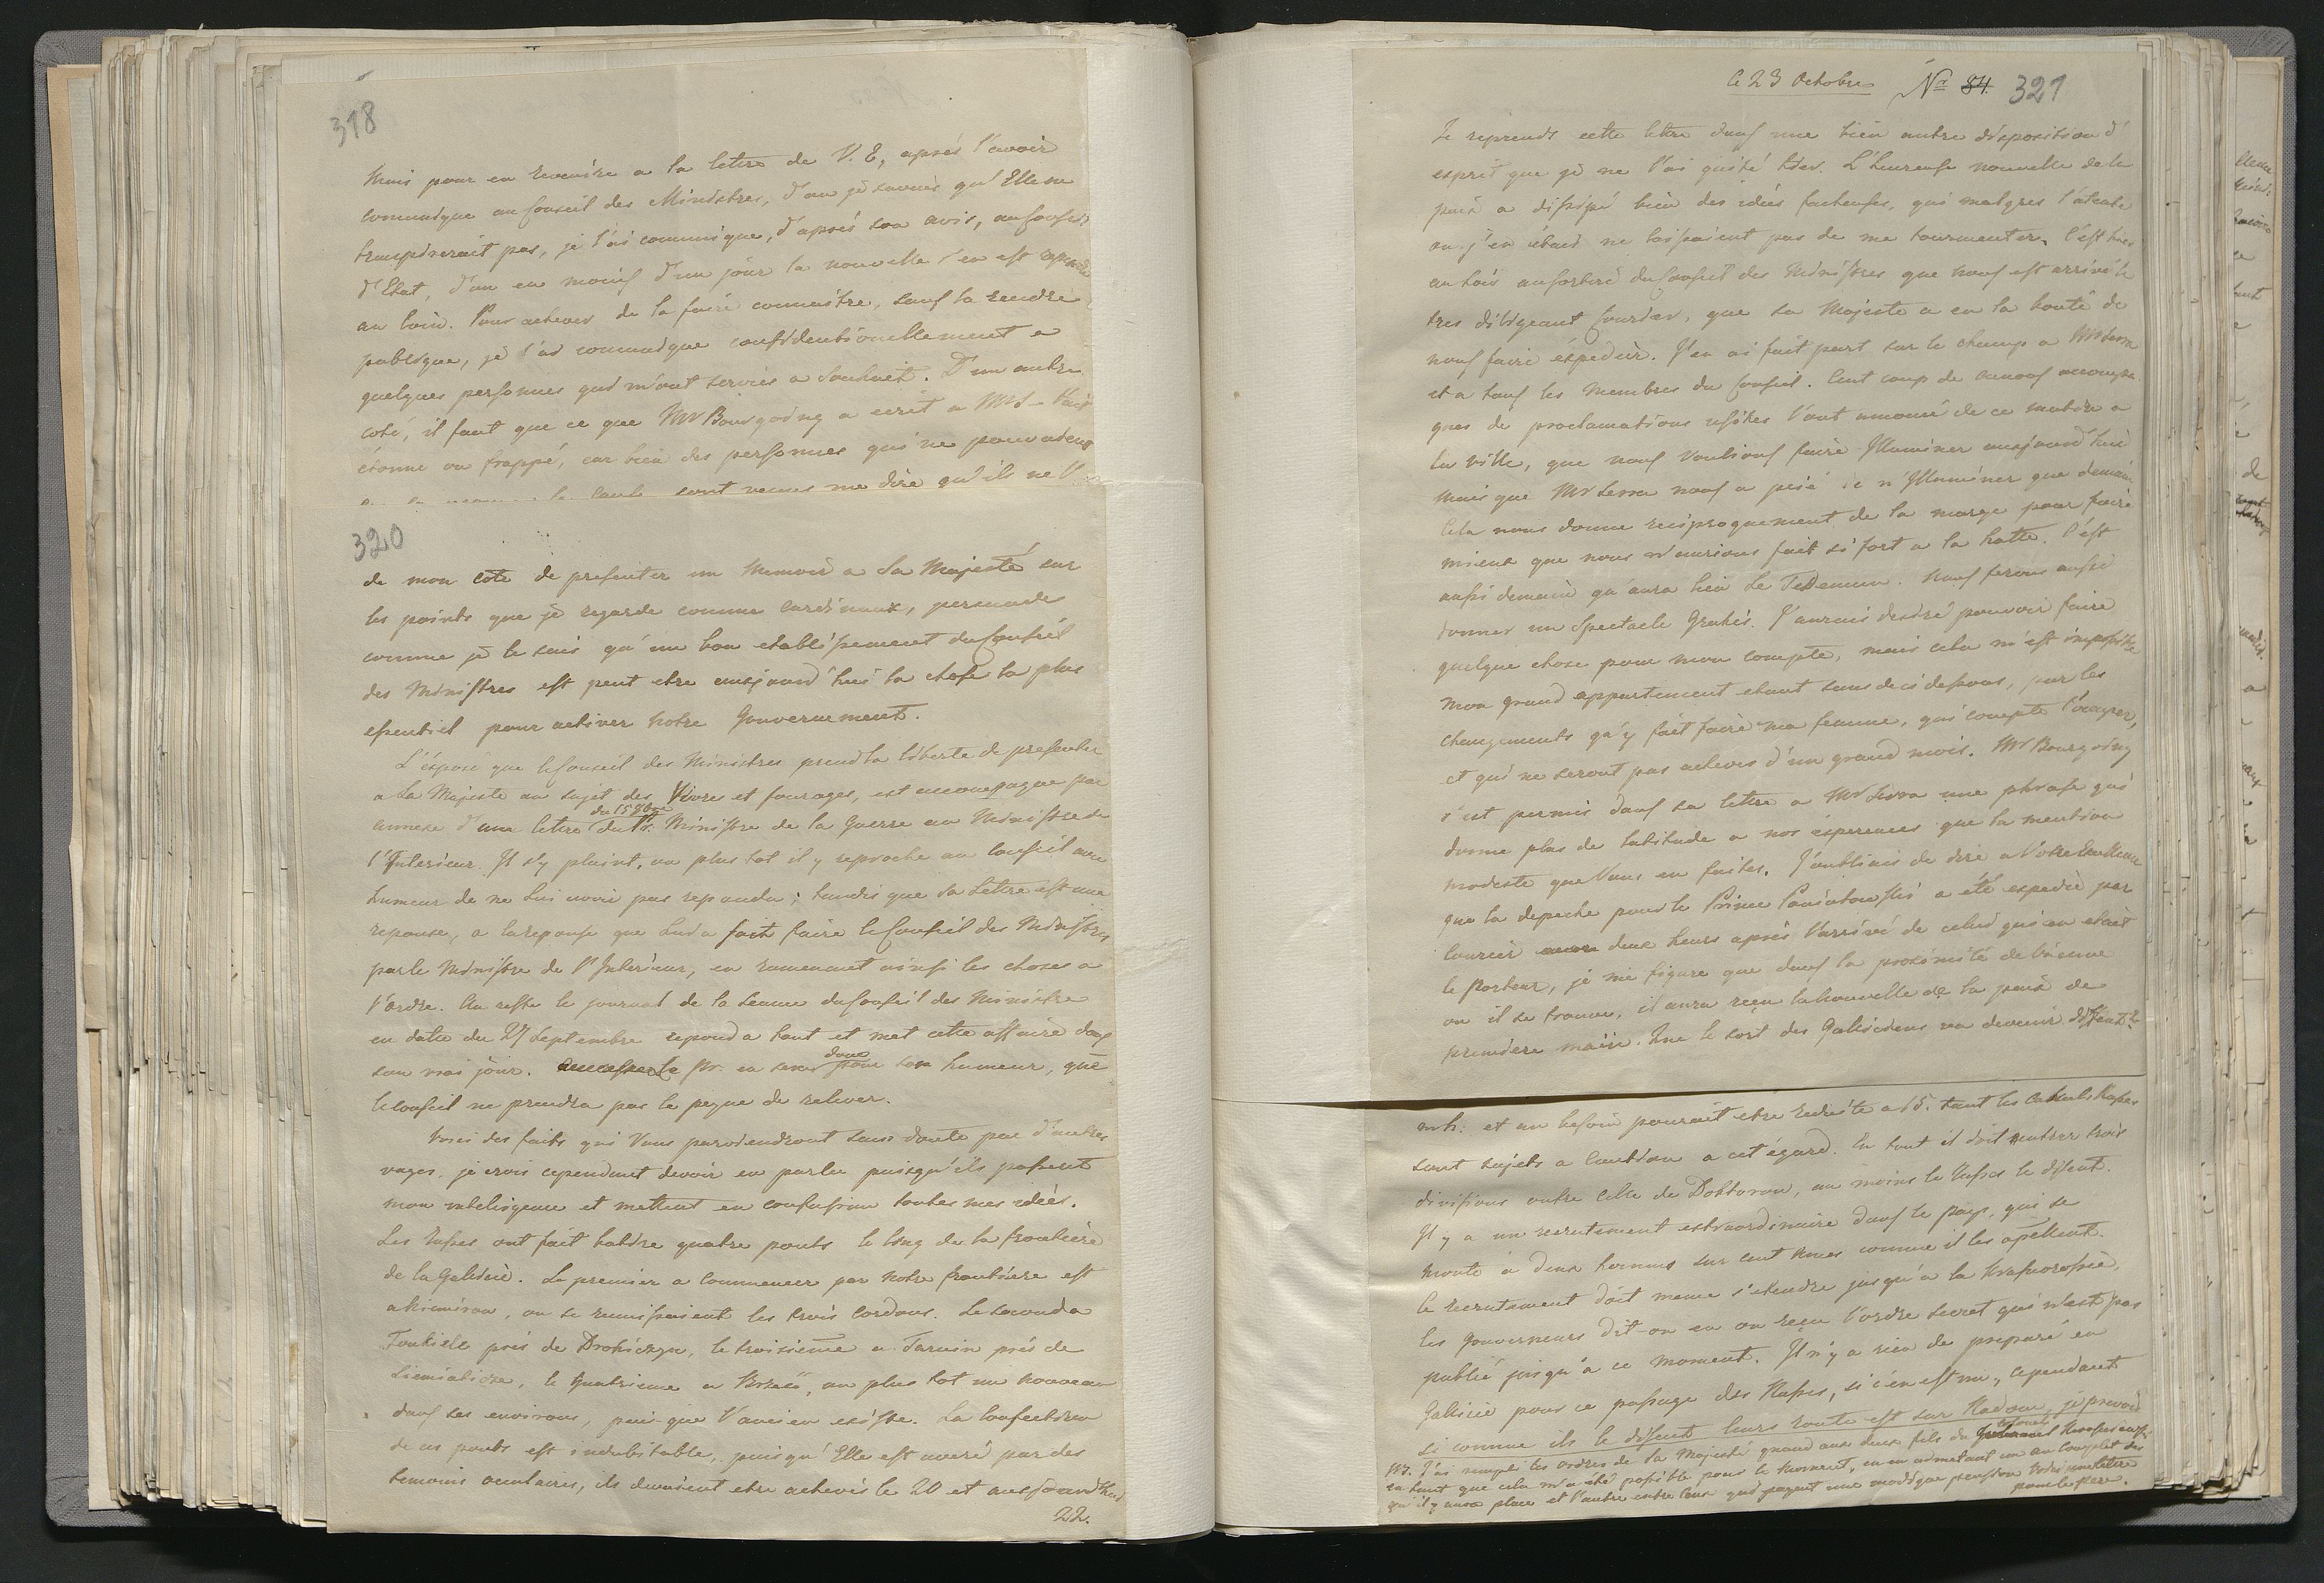 318
Mais pour en revenire a la lettre de V. E, aprés l'avoir
comunique au Conseil des Ministres, d'ou je savois qu'Elle ne
transpirerait pas, je l'ai communique, d'aprés son avis, au Conseil
d'Etat, d'ou en moins d'un jour la nouvelle s'en est repandu
au loin. Pour achever de la faire connaitre, sans la rendre
publique, je l'ai comunique confidentionellement a
quelques personnes qui m'ont servies a souhait. D'un autre
coté, il faut que ce que Mr Bourgoing a ecrit a Mr
étonne ou frappé, car bien des personnes qui ne pouvaient
sont venus me dire qu'ils ne
320
de mon cote de presenter un Memoire a Sa Majesté sur
les points que je regarde comme Cardinaux, persuade
comme je le suis qu'un bon etablissement du Conseil
des Ministres est peut etre aujourd'hui la chose la plus
essentiel pour activer notre Gouvernement.
L'éxposé que le Conseil des Ministres prend la liberte de presenter
a Sa Majeste au sujet des Vivre et fourages, est accompagne par
du 15
annexe d'une lettre du Pr. Ministre de la Guerre au Ministre de
l'Interieur. Il s'y plaint, ou plus tot il y reproche au Conseil avec
humeur de ne lui avoir pas repondu; tandis que sa lettre est une
reponse, a la reponse que lui a fait faire le Conseil des Ministres
par le Ministre de l'Interieur, en ramenant ainsi les choses a
l'ordre. Au reste le journal de la Seance du Conseil des Ministre
en date du 27 Septembre repond a tout et met cette affaire dans
donc
son vrai jour. Pr. en sera pour son humeur, que
le Conseil ne prendra pas la peyne de relever.
Voici des faits qui Vous parviendront sans doute par d'autres
voyes, je crois cependant devoir en parler puisqu'ils passent
mon intelligence et mettent en confusion toutes mes idées.
Les Russes ont fait battre quatre ponts le long de la frontière
de la Galicie. Le premier a commencer par notre frontiere est
a Niemirow, ou se reunissaient les trois Cordons. Le second a
Tonkiele prés de Drohiczyn, le troisieme a Turnin prés de
Siemiaticze, le quatrieme a Brzesc, ou plus tot un nouveau
dans ses environs, puis que l'ancien existe. La Confection
de ces ponts est indubitable, puisqu'Elle est averé par des
temoins occulaires, ils devaient etre achevés le 20 et aujourd'hui
22.
Ce 23 Octobre Nr 84. 321
Je reprends cette lettre dans une bien autre disposition d'
esprit que je ne l'ai quité hier. L'heureuse nouvelle de la
paix a dissipé bien des idées facheuses, qui malgres l'atente
ou j'en étais ne laissaient pas de me tourmenter. C'est hier
au soir au sortire du Conseil des Ministres que nous est arrivé le
tres diligeant Courier, que Sa Majeste a eu la bonté de
nous faire éxpedier. J'en ai fait part sur le champ a Mr Serra
et a tous les Membres du Conseil. Cent coup de canons accompa
gnes de proclamations usités l'ont annoncé de ce matin a
la ville, que nous voulions faire Illuminer aujourd'hui
mais que Mr Serra nous a prié de n'Illuminer que demain
Cela nous donne reciproquement de la marge pour faire
mieux que nous n'aurions fait si fort a la hatte. C'est
aussi demain qu'aura lieu le Te Deum. Nous ferons aussi
donner un Spectacle Gratis. J'aurais desiré pouvoir faire
quelque chose pour mon compte, mais cela m'est impossible
mon grand appartement etant sans desidessous, par les
changements qu'y fait faire ma femme, qui compte l'occuper,
et qui ne seront pas acheves d'un grand mois. Mr Bourgoing
s'est permis dans sa lettre a Mr Serra une phrase qui
donne plus de latitude a nos ésperences que la mention
modeste que Vous en faites. J'oubliais de dire a Votre Excellence
que la depeche pour le Prince Poniatowski a été expedié par
Courier deux heurs aprés l'arrivé de celui qui en etait
le porteur, je me figure que dans la proximité de Vienne
ou il se trouve, il aura reçu la nouvelle de la paix de
premiere main. Que le sort des Galiciens va devenir
mh: et au besoin pourait etre reduite a 15. tant les Calculs Russes
sont sujets a Caution a cet égard. En tout il doit rentrer trois
divisions outre celle de Doktorow, au moins les Russes le disent.
Il y a un recrutement extraordinaire dans le pays, qui se
monte a deux hommes sur cent âmes comme il les apellent.
Ce recrutement doit meme s'etendre jusqu'a la
les Gouverneurs dit-on en on reçu l'ordre secret qui n'est pas
publié jusqu'a ce moment. Il n'y a rien de preparé en
Galicie pour ce passage des Russes, si c'en est un, cependant
si comme ils le disent leurs route est sur Radom, je prevois
NB. J'ai rempli les ordres de Sa Majesté quand aux deux fils du
en tant que cela m'a été possible pour le moment, en en admetant un au Complet des
qu'il y aura place et l'autre entre ceux qui payent une modique pension Voici une lettre
pour le pere.